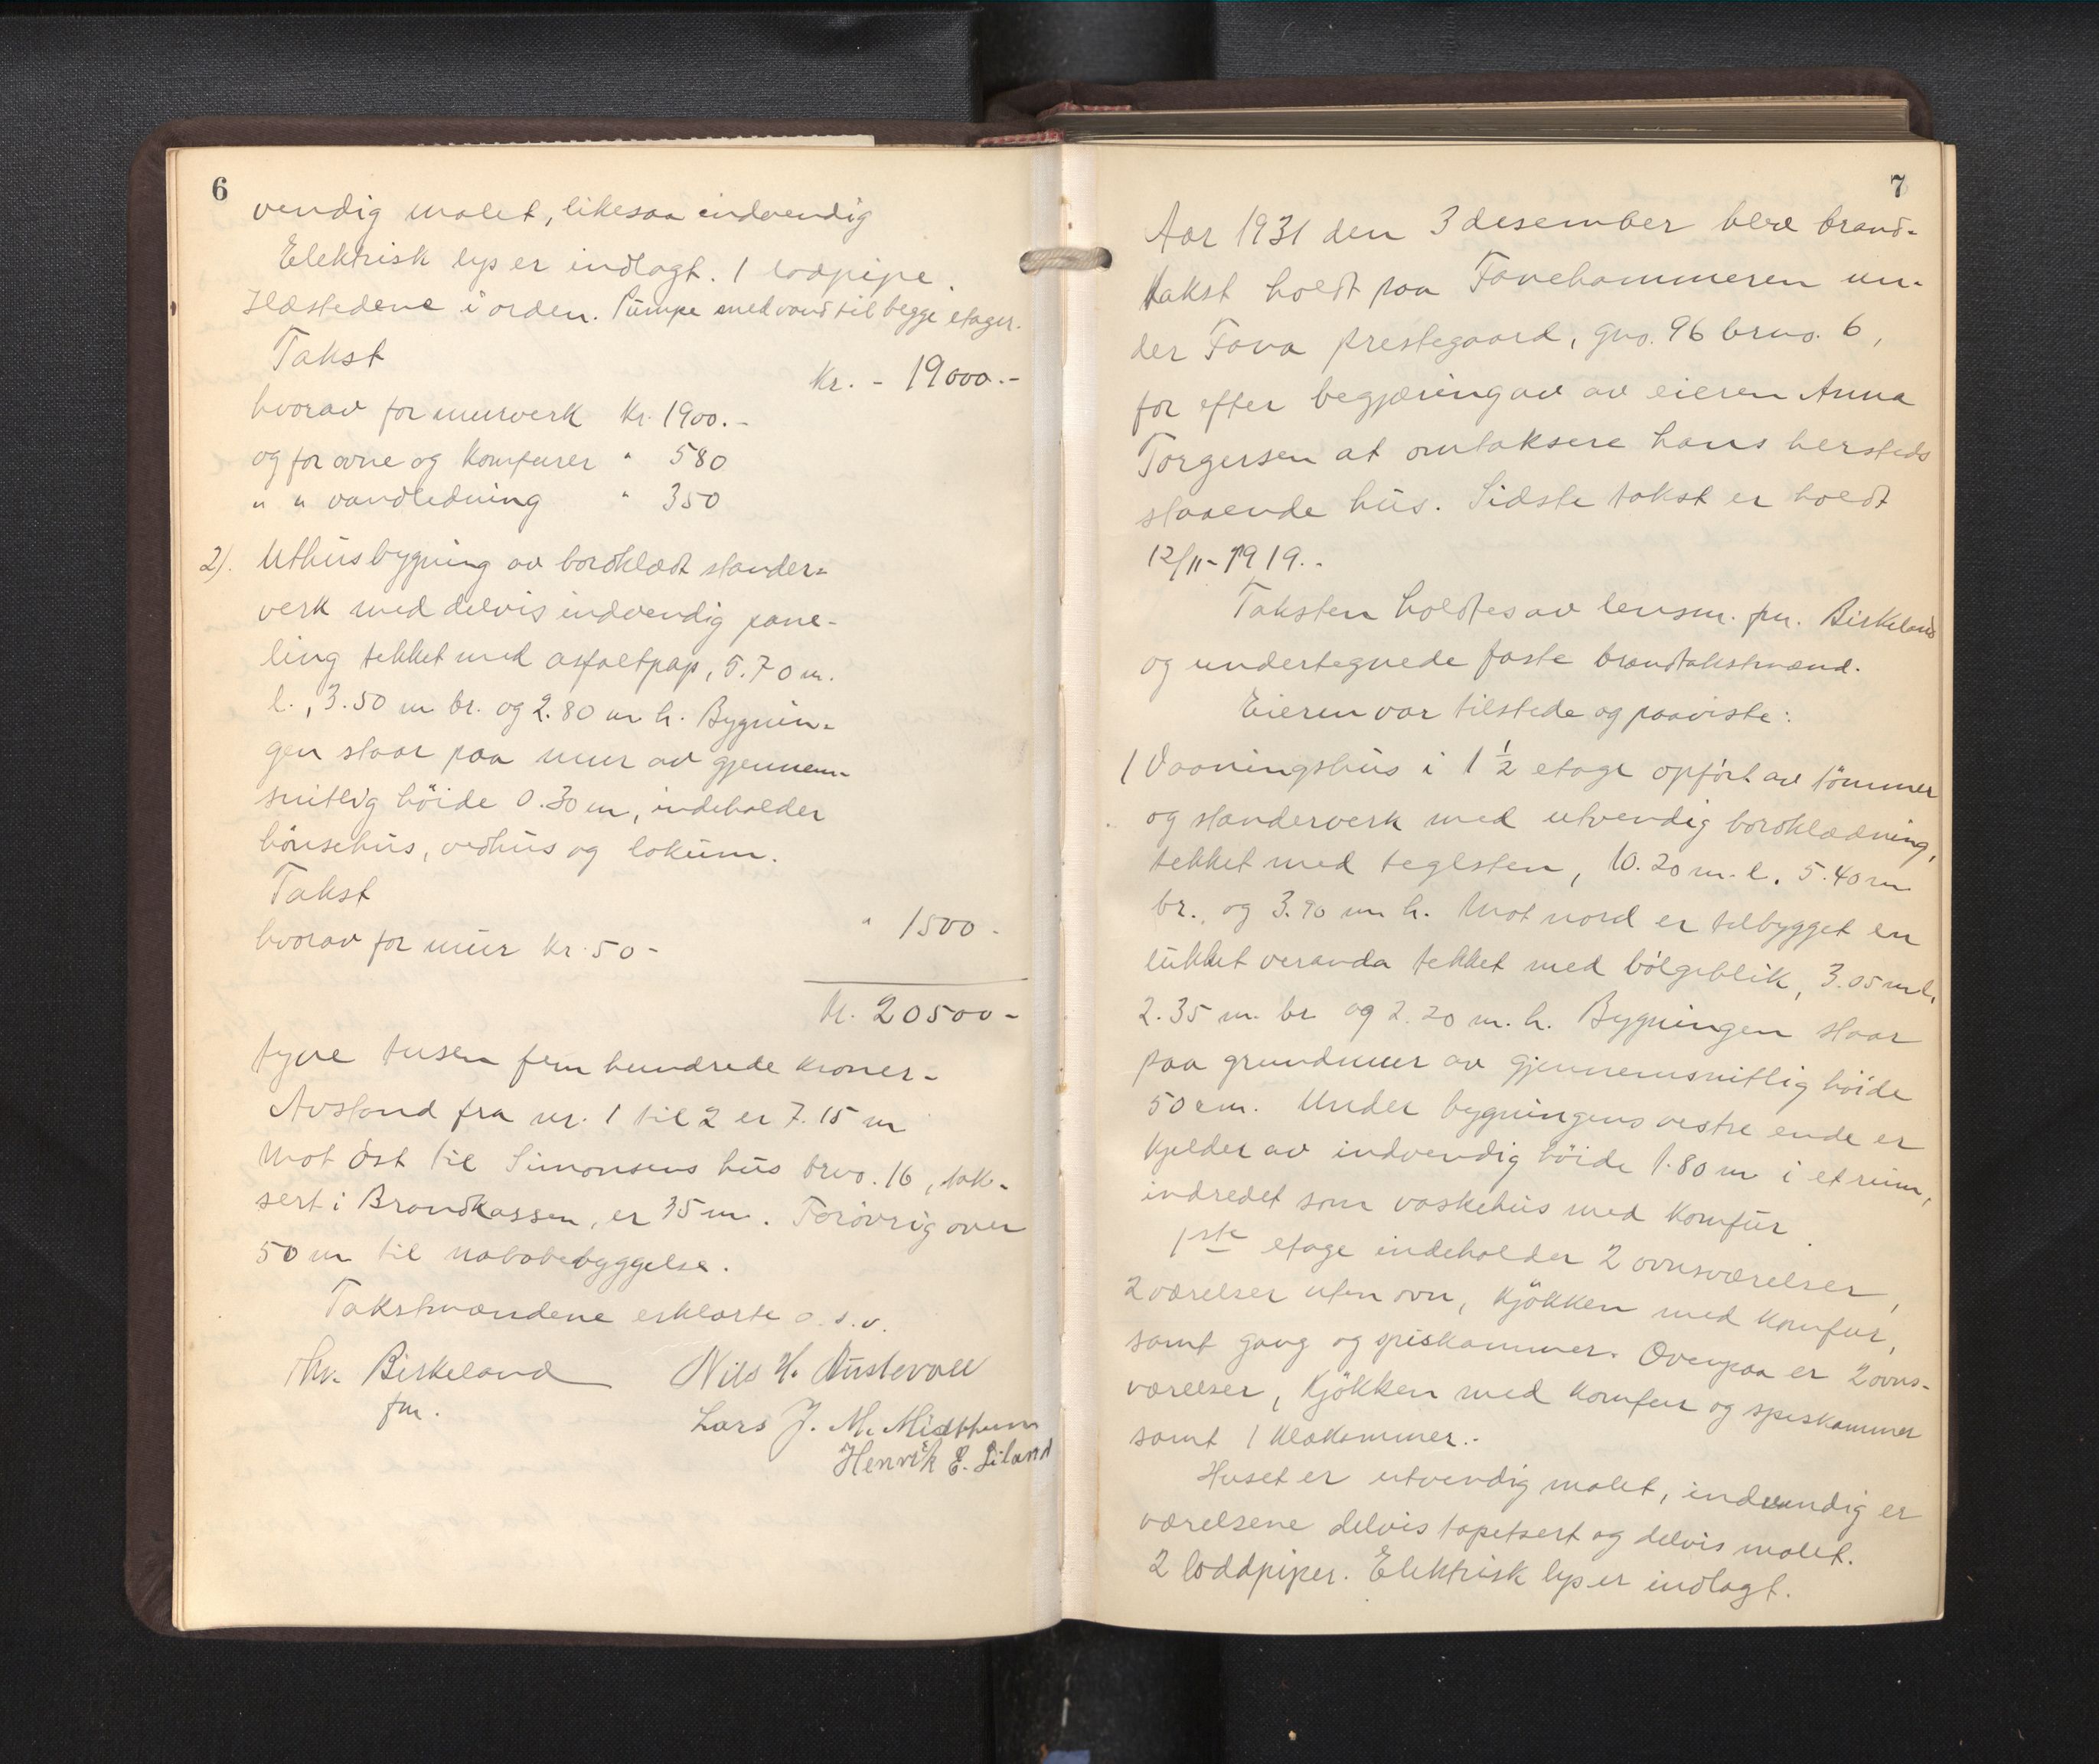 6
vendig malet, likesaa indvendig
Elektrisk lys er indlagt. 1 lodpipe.
Ildstedene i orden. Pumpe med vand til begge etager.
Takst
Kr. - 19000.-
hvorav for murverk Kr. 1900.-
og for ovne og Komfurer " 580
" " vandledning " 350
2). Uthusbygning av bordklædt stander-
verk med delvis indvendig pane-
ling tekket med asfaltpap, 5.70 m.
l., 3.50 m br. og 2.80 m h. Bygnin-
gen staar paa mur av gjennem-
snitlig höide 0.30 m, indeholder
hönsehus, vedhus og lokum.
Takst
" 1500 -
hvorav for mur kr. 50 -
kr. 20500 -
tyve tusen fem hundrede kroner -
Avstand fra nr. 1 til 2 er 7.15 m
Mot öst til Simonsens hus brno. 16, tak-
sert i Brandkassen, er 35 m. Forövrig over
50 m til nabobebyggelse.
Takstmændene erklærte o.s.v.
Birkeland Nils H. Austevoll
fm.
Lars J. M. Midttun
Henrik E. Liland
7
Aar 1931 den 3 desember blev brand-
takst holdt paa Fanehammeren un-
der Fana prestegaard, gno. 96 brno. 6,
for efter begjæring av av eieren Anna
Torgersen at omtaksere hans hersteds
staaende hus. Sidste takst er holdt
12/11-1919.-
Taksten holdtes av lensm. fm. Birkeland
og undertegnede faste brandtakstmænd.
Eieren var tilstede og paaviste:
1 Vaaningshus i 1 1/2 etage opfört av tömmer
og standerverk med utvendig bordklædning,
tekket med teglsten, 10.20 m. l. 5.40 m
br., og 3.90 m h. Mot nord er tilbygget en
lukket veranda tekket med bölgeblik, 3.05 m l.
2.35 m. br og 2.20 m. h. Bygningen staar
paa grundmur av gjennemsnitlig höide
50 cm. Under bygningens vestre ende er
kjelder av indvendig höide 1.80 m i et rum,
indredet som vaskehus med Komfur.
1ste etage indeholder 2 ovnsværelser,
2 værelser uten ovn, Kjökken med Komfur,
samt gang og spiskammer. Ovenpaa er 2 ovns-
værelser, Kjökken med Komfur og spiskammer
samt 1 klækammer.-
Huset er utvendig malet, indvendig er
værelsene delvis tapetsert og delvis malet.
2 loddpiper. Elektrisk lys er indlagt.